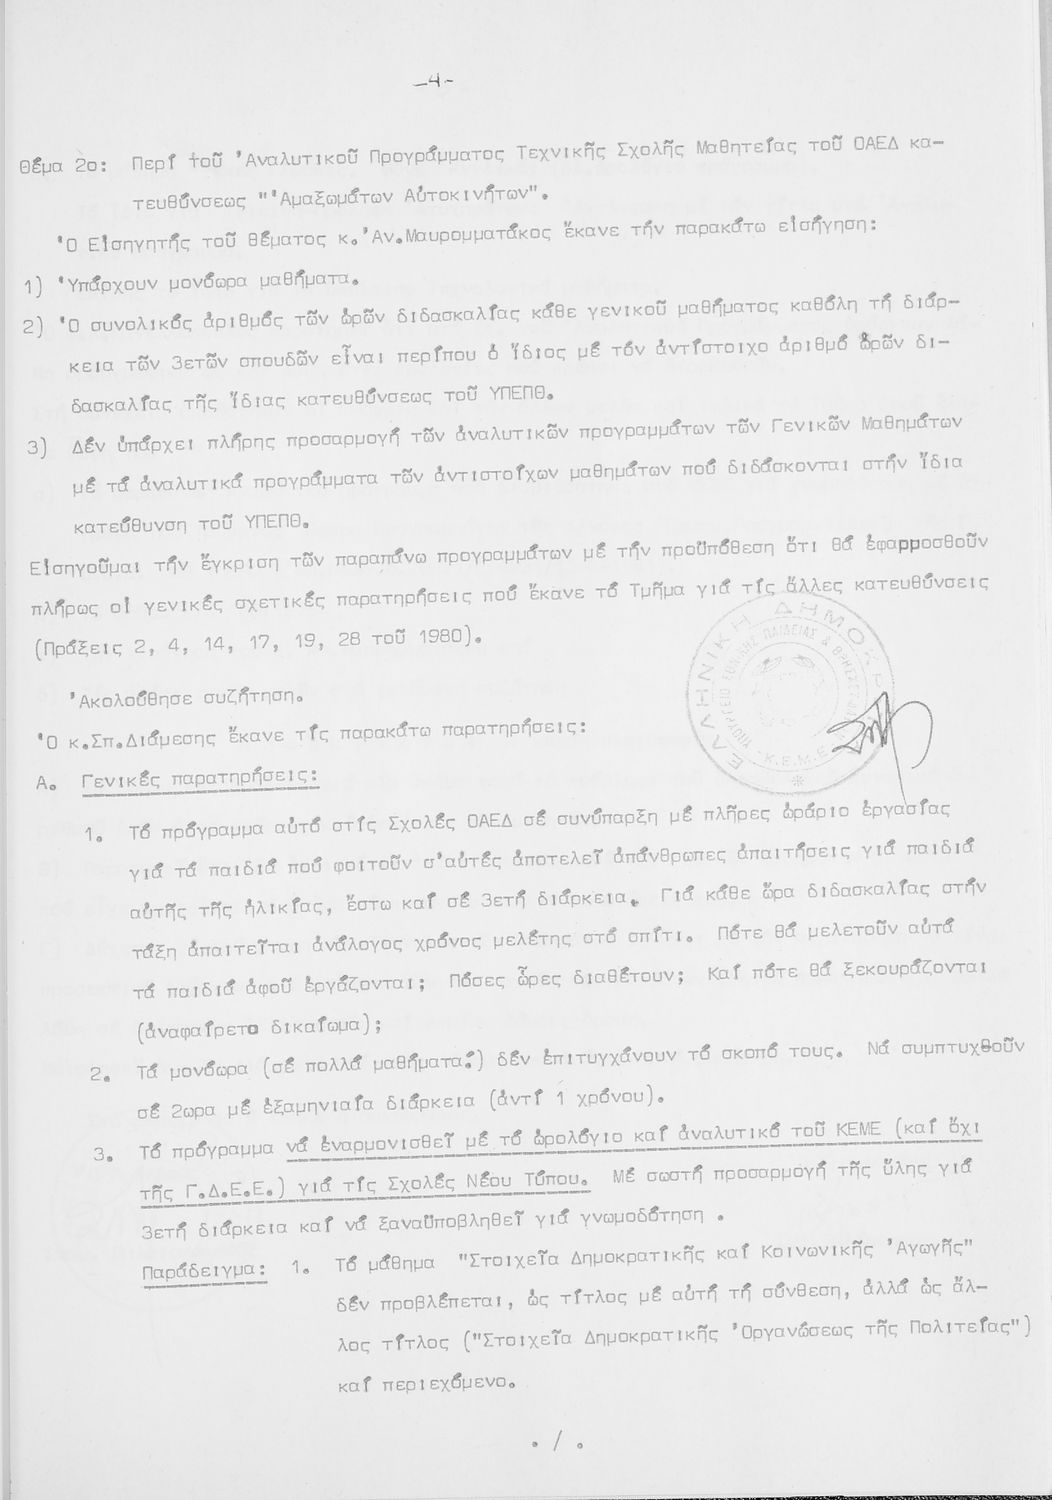 -4-
Θέμα 2ο: Περί τοῦ 'Αναλυτικοῦ Προγράμματος Τεχνικῆς Σχολῆς Μαθητείας τοῦ ΟΑΕΔ κα-
τευθύνσεως "'Αμαξωμάτων Αὐτοκινήτων".
'Ο Εἰσηγητής τοῦ θέματος κ.'Αν.Μαυρομματάκος ἔκανε τήν παρακάτω εἰσήγηση:
1) 'Υπάρχουν μονόωρα μαθήματα.
2) 'Ο συνολικός ἀριθμός τῶν ὡρῶν διδασκαλίας κάθε γενικοῦ μαθήματος καθόλη τή διάρ-
κεια τῶν 3ετῶν σπουδῶν εἶναι περίπου ὁ ἴδιος μέ τόν ἀντίστοιχο ἀριθμό ὡρῶν δι-
δασκαλίας τῆς ἴδιας κατευθύνσεως τοῦ ΥΠΕΠΘ.
3) Δέν ὑπάρχει πλήρης προσαρμογή τῶν ἀναλυτικῶν προγραμμάτων τῶν Γενικῶν Μαθημάτων
μέ τά ἀναλυτικά προγράμματα τῶν ἀντιστοίχων μαθημάτων πού διδάσκονται στήν ἴδια
κατεύθυνση τοῦ ΥΠΕΠΘ.
Εἰσηγοῦμαι τήν ἔγκριση τῶν παραπάνω προγραμμάτων μέ τήν προϋπόθεση ὅτι θά ἐφαρμοσθοῦν
πλήρως οἱ γενικές σχετικές παρατηρήσεις πού ἔκανε τό Τμῆμα γιά τίς ἄλλες κατευθύνσεις
(Πράξεις 2, 4, 14, 17, 19, 28 τοῦ 1980).
'Ακολούθησε συζήτηση.
'Ο κ.Σπ.Διάμεσης ἔκανε τίς παρακάτω παρατηρήσεις:
Α. Γενικές παρατηρήσεις:
1. Τό πρόγραμμα αὐτό στίς Σχολές ΟΑΕΔ σέ συνύπαρξη μέ πλῆρες ὡράριο ἐργασίας
γιά τά παιδιά πού φοιτοῦν σ'αὐτές ἀποτελεῖ ἀπάνθρωπες ἀπαιτήσεις γιά παιδιά
αὐτῆς τῆς ἡλικίας, ἔστω καί σέ 3ετή διάρκεια. Γιά κάθε ὥρα διδασκαλίας στήν
τάξη ἀπαιτεῖται ἀνάλογος χρόνος μελέτης στό σπίτι. Πότε θά μελετοῦν αὐτά
τά παιδιά ἀφοῦ ἐργάζονται; Πόσες ὧρες διαθέτουν; Καί πότε θά ξεκουράζονται
(ἀναφαίρετο δικαίωμα);
2. Τά μονόωρα (σέ πολλά μαθήματα!) δέν ἐπιτυγχάνουν τό σκοπό τους. Νά συμπτυχθοῦν
σέ 2ωρα μέ ἑξαμηνιαία διάρκεια (ἀντί 1 χρόνου).
3. Τό πρόγραμμα νά ἐναρμονισθεῖ μέ τό ὡρολόγιο καί ἀναλυτικό τοῦ ΚΕΜΕ (καί ὄχι
τῆς Γ.Δ.Ε.Ε.) γιά τίς Σχολές Νέου Τύπου. Μέ σωστή προσαρμογή τῆς ὕλης γιά
3ετή διάρκεια καί νά ξαναϋποβληθεῖ γιά γνωμοδότηση .
Παράδειγμα: 1. Τό μάθημα "Στοιχεῖα Δημοκρατικῆς καί Κοινωνικῆς 'Αγωγῆς"
δέν προβλέπεται, ὡς τίτλος μέ αὐτή τή σύνθεση, ἀλλά ὡς ἄλ-
λος τίτλος ("Στοιχεῖα Δημοκρατικῆς 'Οργανώσεως τῆς Πολιτείας")
καί περιεχόμενο.
. / .
ΕΛΛΗΝΙΚΗ ΔΗΜΟΚΡ
Κ.Ε.Μ.Ε